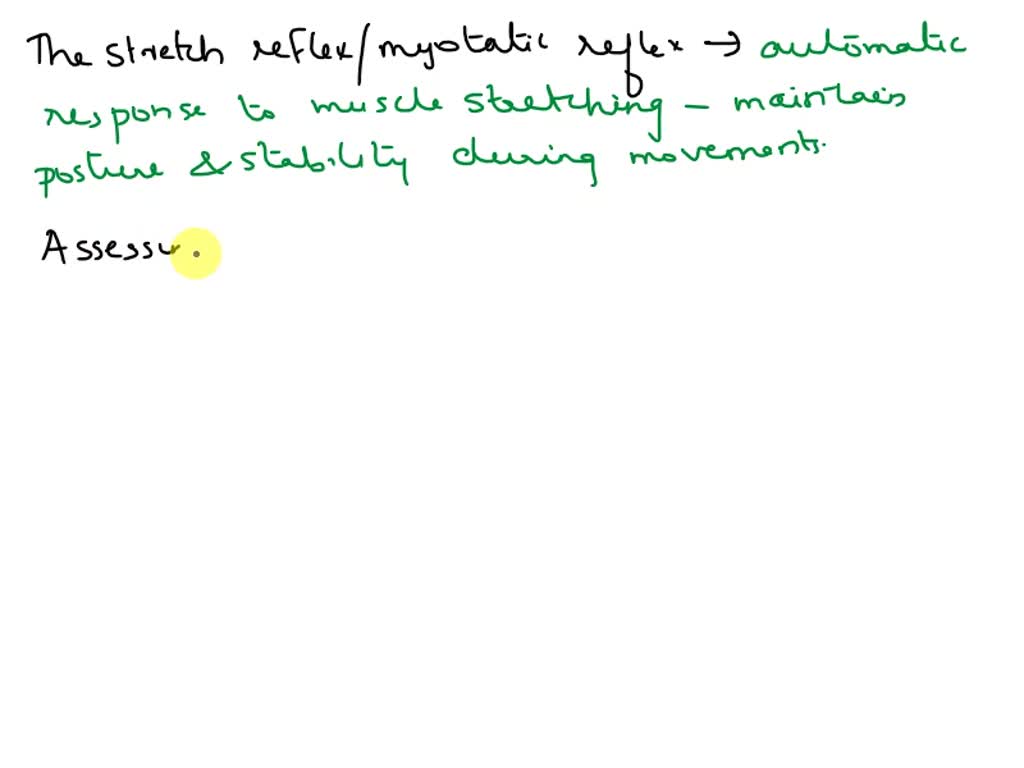 The stretch reflex/myotatic reflex → automatic
response to muscle stretching - maintain
posture & stability during movements.
Assessu